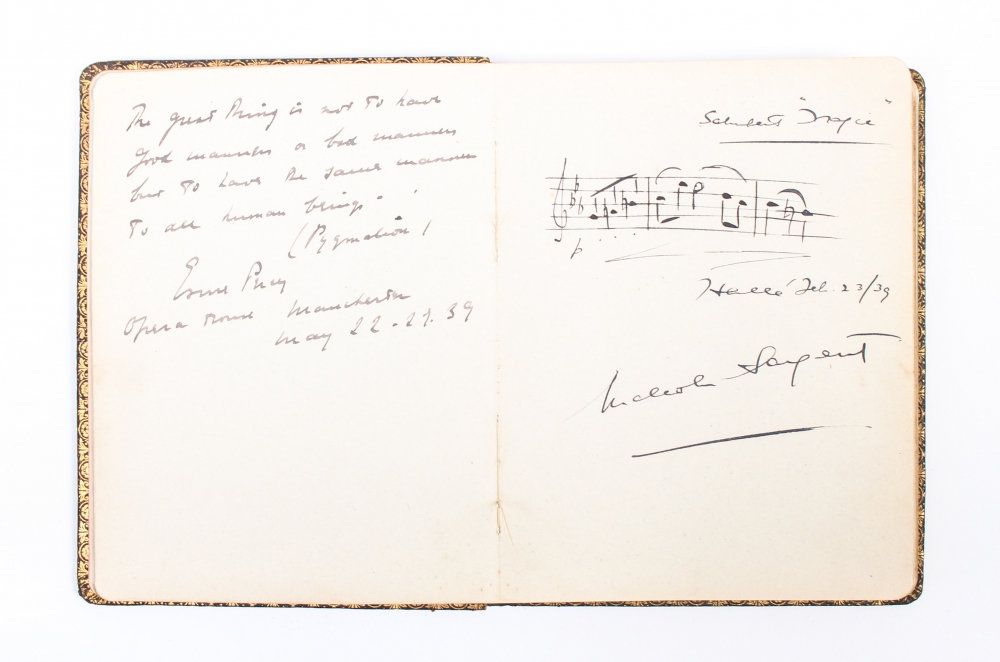 The great thing is not to have
good manners or bad manners
but to have the same manner
to all human beings.
(Pygmalion)
Esme Percy
Opera House Manchester
May 22-27. 39
Schubert "Tragic"
p
Hallé Feb. 23/39
Malcolm Sargent